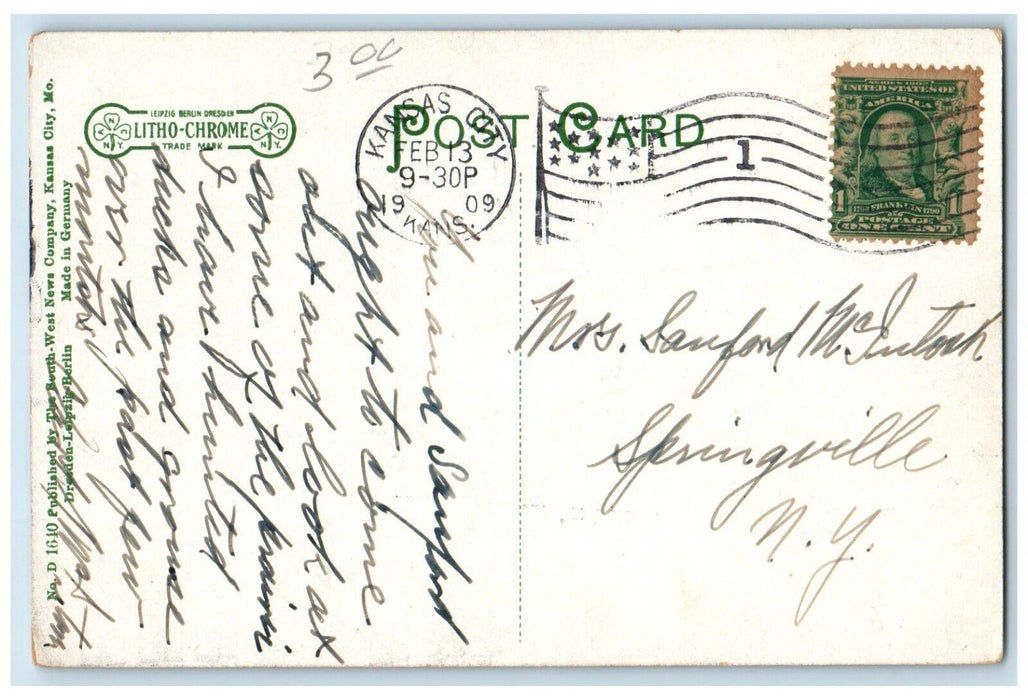 3.00
POST CARD
LEIPZIG BERLIN DRESDEN
LITHO-CHROME
TRADE MARK
N Y N Y
KANSAS CITY
FEB 13
9-30P
1909
KANS.
1
SERIES 1902
UNITED STATES OF
AMERICA
1706 FRANKLIN 1790
POSTAGE
1 ONE CENT 1
Mrs. Sanford McIntosh
Springville
N. Y.
You and Sanford
ought to come
out and look at
some of the
I have hunted
ducks and grouse
over the past few
No. D 1640 Published by The South-West News Company, Kansas City, Mo.
Dresden-Leipzig-Berlin Made in Germany